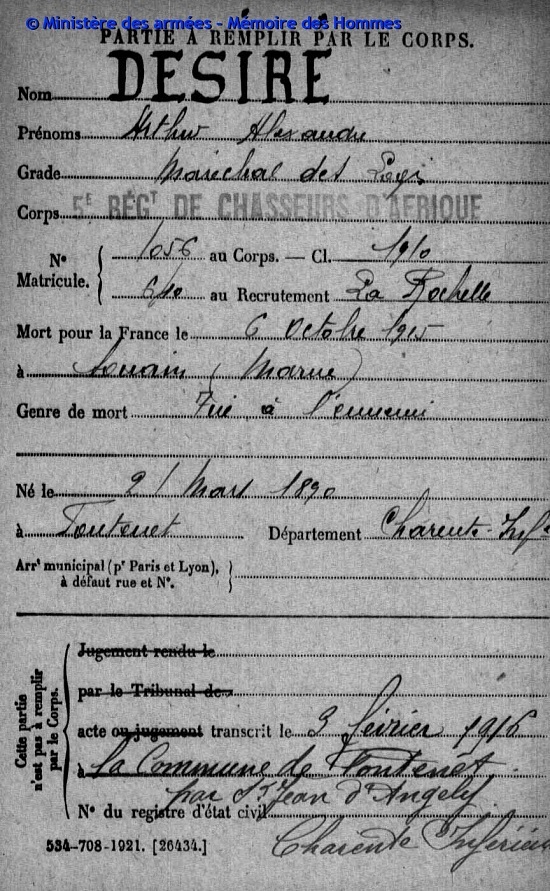 © Ministère des armées - Mémoire des Hommes
PARTIE À REMPLIR PAR LE CORPS.
Nom DESIRE
Prénoms Arthur Alexandre
Grade Maréchal des Logis
Corps 5E RÉGT DE CHASSEURS D'AFRIQUE
N° Matricule. 1056 au Corps. — Cl. 1910
610 au Recrutement La Rochelle
Mort pour la France le 6 Octobre 1915
à Souain (Marne)
Genre de mort Tué à l'ennemi
Né le 21 Mars 1890
à Fontenet Département Charente-Infre
Arrt municipal (pr Paris et Lyon),
à défaut rue et N°.
Cette partie n'est pas à remplir par le Corps.
Jugement rendu le
par le Tribunal de
acte ou jugement transcrit le 3 février 1916
à la Commune de Fontenet
par St Jean d'Angely
N° du registre d'état civil
Charente Inférieure
534-708-1921. [26434.]